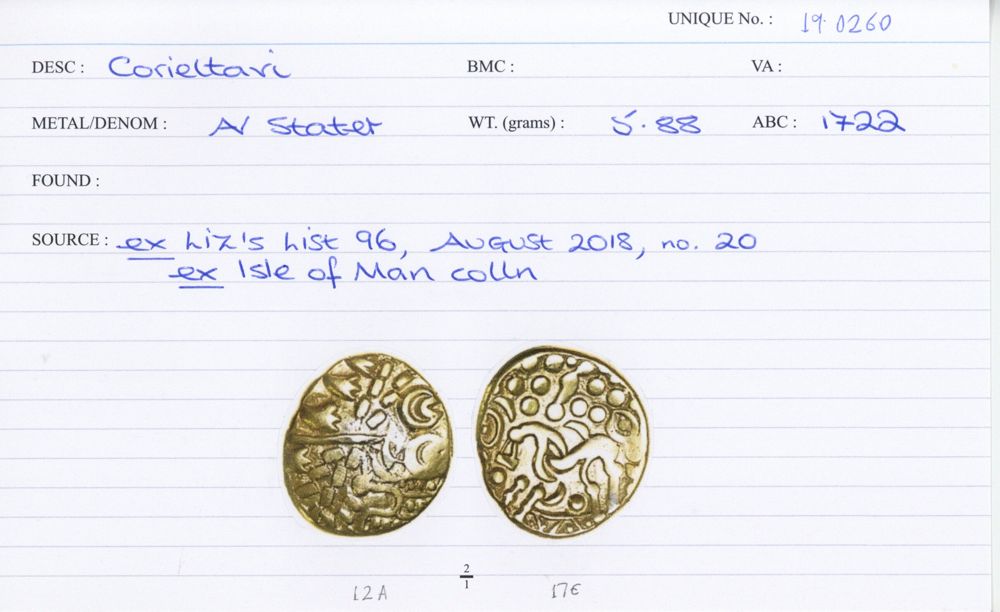 UNIQUE No. : 19.0260
DESC : Corieltavi BMC : VA :
METAL/DENOM : AV Stater WT. (grams) : 5.88 ABC : 1722
FOUND :
SOURCE : ex Liz's List 96, AUGUST 2018, no. 20
ex Isle of Man colln
2
1
12A 17E